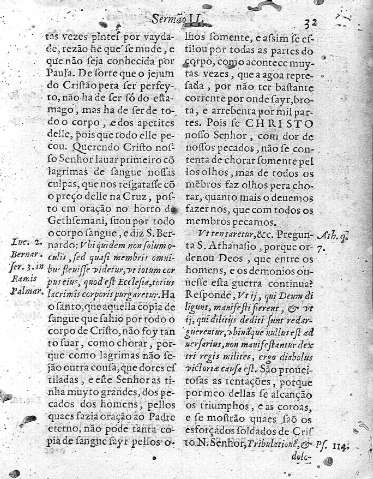 Sermaõ II.
32
tas vezes pintes por vayda-
de, rezão he que se mude, e
que não seja conhecida por
Paula. De sorte que o jejum
do Cristão pera ser perfey-
to, não ha de ser só do esta-
mago, mas ha de ser de to-
do o corpo, e dos apetites
delle, pois que todo elle pe-
cou. Querendo Cristo nos-
so Senhor lauar primeiro cõ
lagrimas de sangue nossas
culpas, que nos resgatasse cõ
o preço delle na Cruz, pos-
to em oração no horto de
Gethsemani, suou por todo
o corpo sangue, e diz S. Ber-
nardo: Vbi quidem non solum o-
culis, sed quasi membris omni-
bus fleuisse videtur, vt totum cor
pus eius, quod est Ecclesia, totius
lacrimis corporis purgaretur. Ha
o santo, que aquella copia de
sangue que sahio por todo o
corpo de Cristo, não foy tan
to suar, como chorar, por-
que como lagrimas não se-
jão outra cousa, que dores es
tiladas, e este Senhor as ti-
nha muyto grandes, dos pe-
cados dos homens, pellos
quaes fazia oração ao Padre
eterno, não pode tanta co-
pia de sangue sayr pellos o-
Luc. 2.
Bernar.
ser. 3. in
Ramis
Palmar.
lhos somente, e assim se es-
tilou por todas as partes do
corpo, como acontece muy-
tas vezes, que a agoa repre-
sada, por não ter bastante
corrente por onde sayr, bro-
ta, e arrebenta por mil par-
tes. Pois se CHRISTO
nosso Senhor, com dor de
nossos pecados, não se con-
tenta de chorar somente pel
los olhos, mas de todos os
mẽbros faz olhos pera cho-
rar, quanto mais o deuemos
fazer nos, que com todos os
membros pecamos.
Vt tentaretur, &c. Pregun-
ta S. Athanasio, porque or-
denou Deos, que entre os
homens, e os demonios ou-
uesse esta guerra continua?
Responde, Vt ij, qui Deum di
ligunt, manifesti fierent, & vt
ij, qui dilius dediti sunt redar-
guerentur, vbi que nullus est ad
uersarius, non manifestantur dex
tri regis milites, ergo diabolus
victoriæ causa est. São prouei-
tosas as tentações, porque
por meo dellas se alcanção
os triumphos, e as coroas,
e se mostrão quaes saõ os
esforçados soldados de Cris
to N. Senhor, Tribulationẽ, &
dolo-
Ath. q.
7.
Ps. 114.